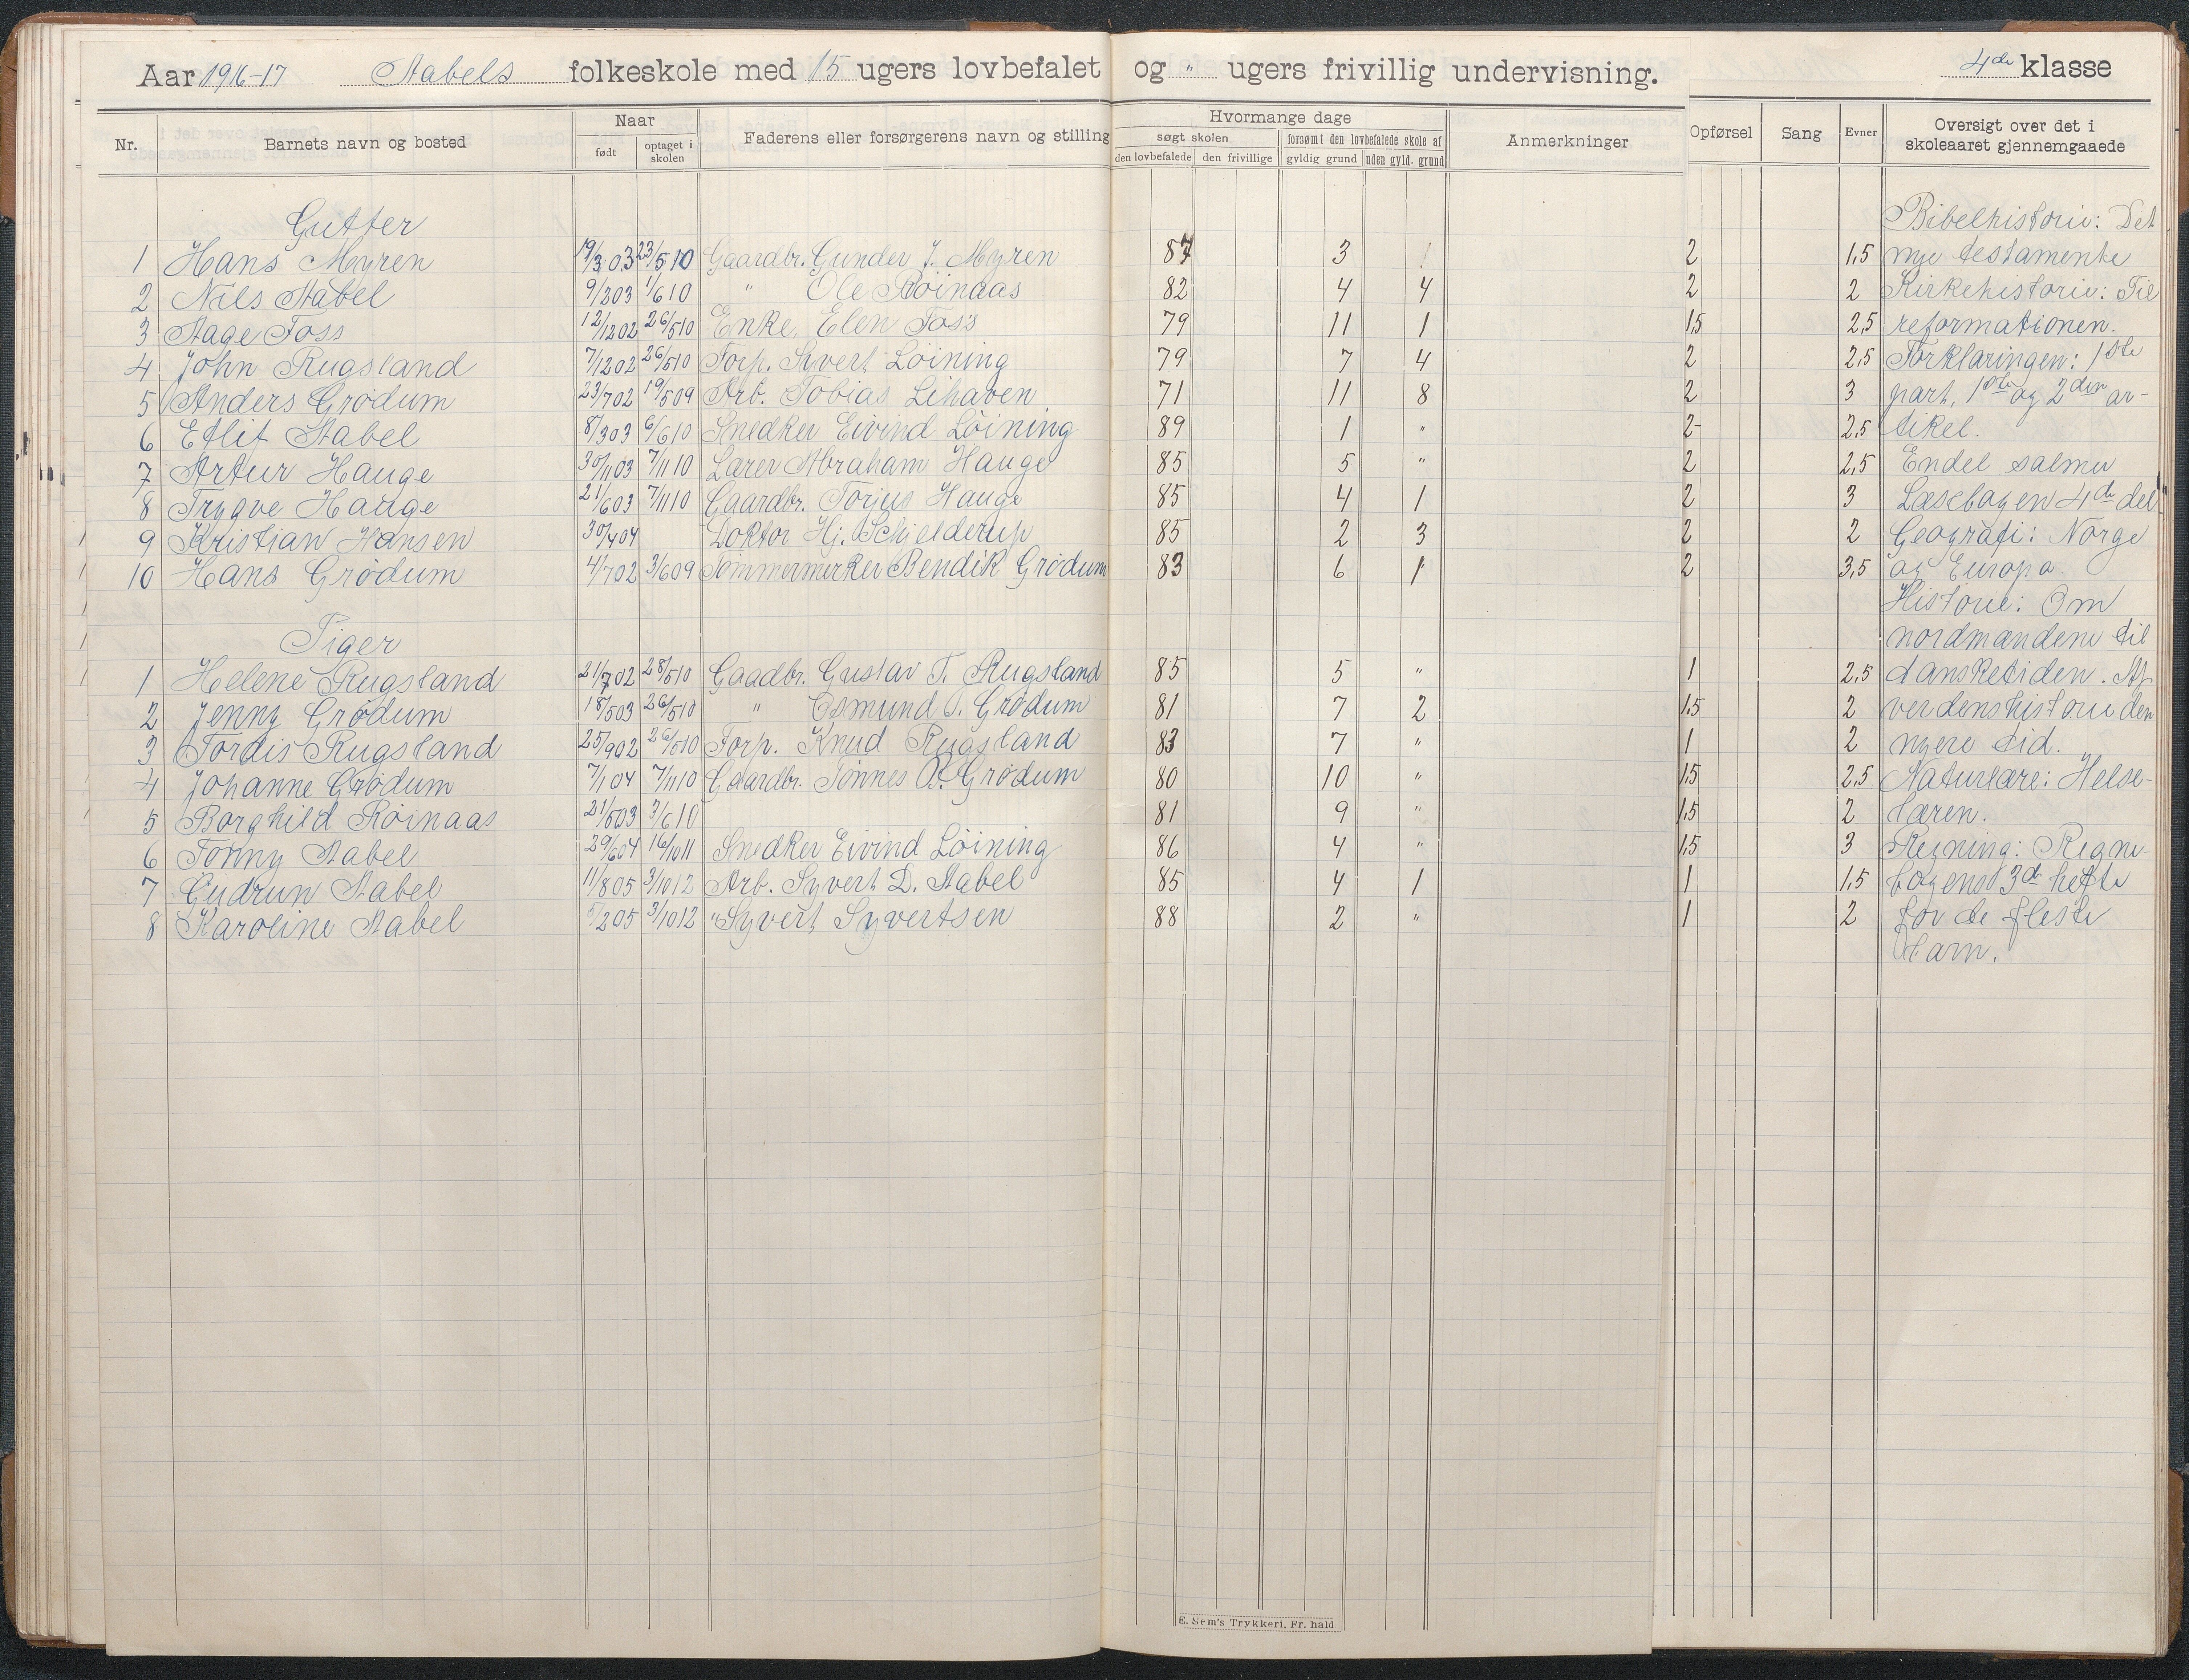 Aar 1916-17 Stabels folkeskole med 15 ugers lovbefalet og " ugers frivillig undervisning. 4de klasse
Nr. Barnets navn og bosted Naar født optaget i skolen Faderens eller forsørgerens navn og stilling Hvormange dage søgt skolen den lovbefalede den frivillige forsømt den lovbefalede skole af gyldig grund uden gyld. grund Anmerkninger Opførsel Sang Evner Oversigt over det i skoleaaret gjennemgaaede
Gutter Bibelhistorie: Det
1 Hans Myren 19/3 03 23/5 10 Gaardbr. Gunder J. Myren 87 3 1 2 1,5 nye testamente
2 Nils Stabel 9/2 03 1/6 10 " Ole Röinaas 82 4 4 2 2 Kirkehistorie: Til
3 Aage Foss 12/12 02 26/5 10 Enke Elen Foss 79 11 1 1,5 2,5 reformationen.
4 John Rugsland 7/12 02 26/5 10 Forp. Syvert Löining 79 7 4 2 2,5 Forklaringen: 1ste
5 Anders Grödum 23/7 02 19/5 09 Arb. Tobias Lihaven 71 11 8 2 3 part, 1ste og 2den ar-
6 Etlif Stabel 8/3 03 6/6 10 Snedker Eivind Löining 89 1 " 2- 2,5 tikel.
7 Artur Hauge 30/11 03 7/11 10 Lærer Abraham Hauge 85 5 " 2 2,5 Endel salmer
8 Trygve Hauge 21/6 03 7/11 10 Gaardbr. Torjus Hauge 85 4 1 2 3 Læsebogen 4de del
9 Kristian Hansen 30/4 04 Doktor Hj. Schjelderup 85 2 3 2 2 Geografi: Norge
10 Hans Grödum 4/7 02 3/6 09 Tömmermerker Bendik Grödum 83 6 1 2 3,5 og Europa.
Historie: Om
Piger nordmændene til
1 Helene Rugsland 21/7 02 28/5 10 Gaadbr. Gustav T. Rugsland 85 5 " 1 2,5 dansketiden. Af
2 Jenny Grödum 18/5 03 26/5 10 " Osmund T. Grödum 81 7 2 1,5 2 verdenshistorie den
3 Tordis Rugsland 25/9 02 26/5 10 Forp. Knud Rugsland 83 7 " 1 2 nyere tid.
4 Johanne Grödum 7/1 04 7/11 10 Gaardbr. Tönnes O. Grödum 80 10 " 1,5 2,5 Naturlære: Helse-
5 Borghild Röinaas 21/5 03 3/6 10 81 9 " 1,5 2 læren.
6 Tonny Stabel 29/6 04 16/10 11 Snedker Eivind Löining 86 4 " 1,5 3 Regning: Regne-
7 Gudrun Stabel 11/8 05 3/10 12 Arb. Syvert D. Stabel 85 4 1 1 1,5 bogens 3de hefte
8 Karoline Stabel 5/2 05 3/10 12 " Syvert Syvertsen 88 2 " 1 2 for de fleste
barn.
E. Sem's Trykkeri, Fr. hald